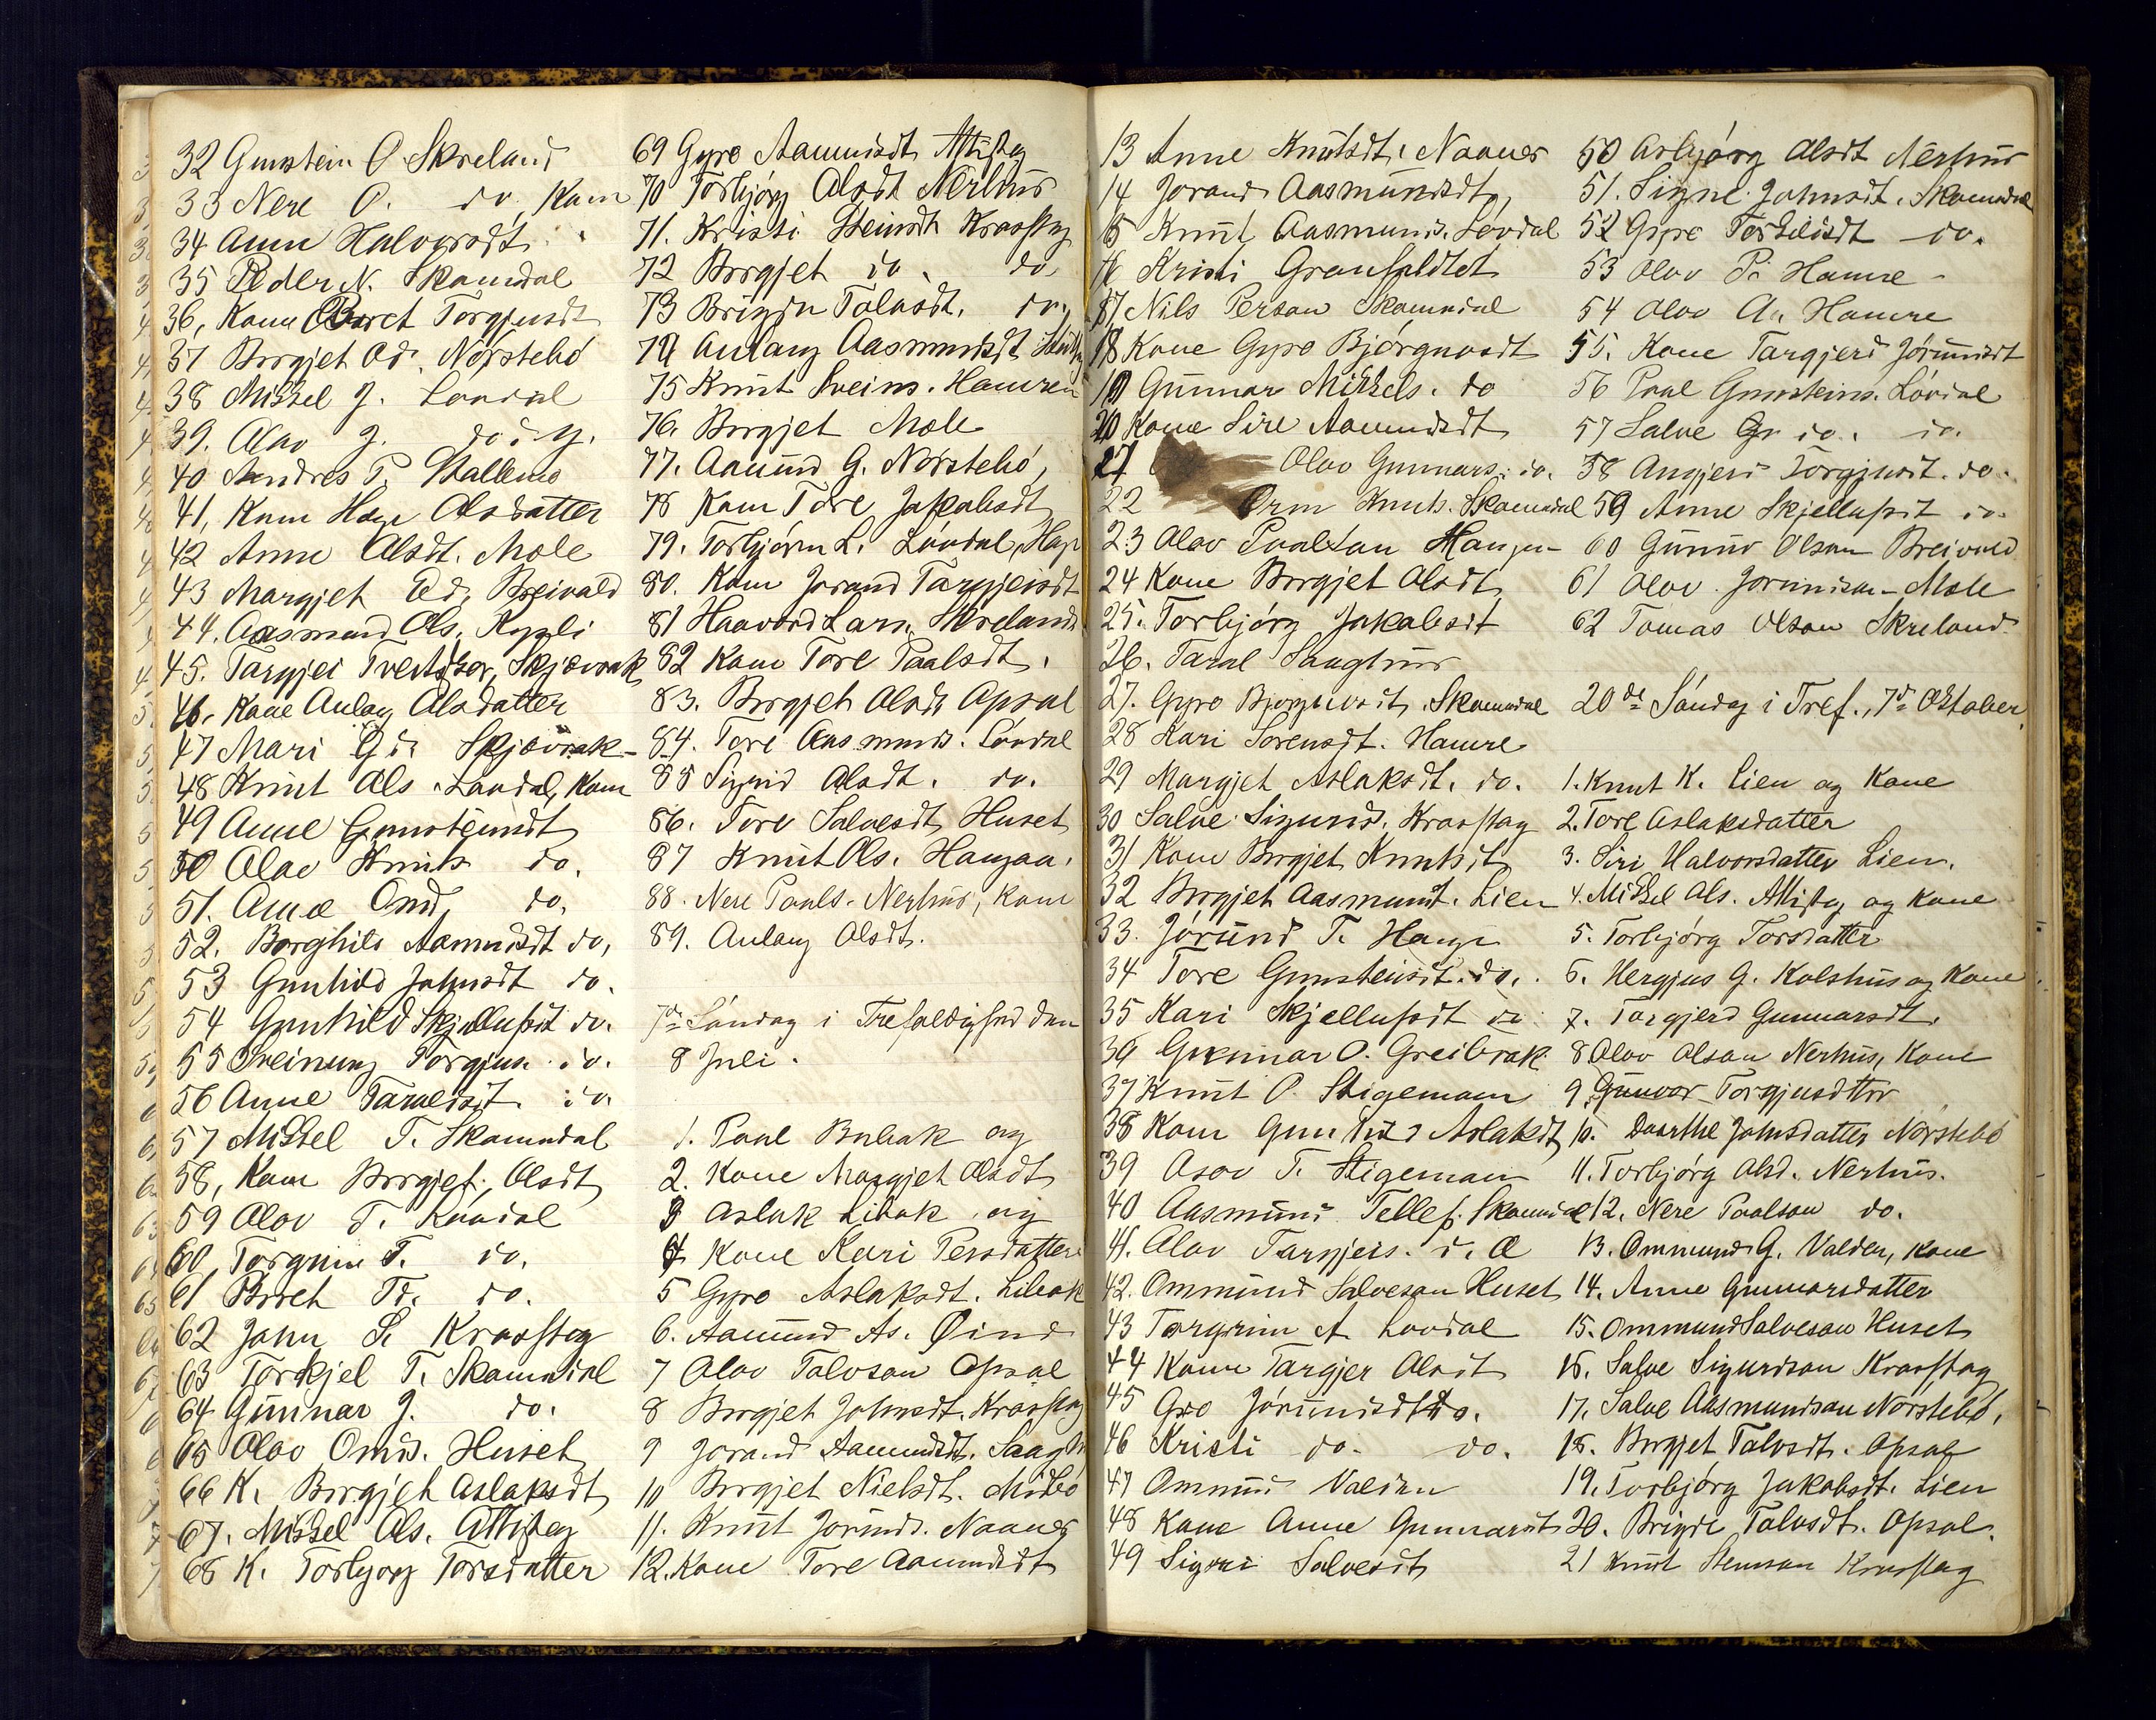 32 Gunstein O Skreland
33 Nere O. do. Kone
34 Aum Halvorsdt.
35 Peder N. Skomdal
36, Kone Birret Torgjusdt
37 Birgjet Od. Nörstebö
38 Mikkel J. Lövdal
39. Olav J. do i y.
40 Andres T. Stallemo
41, Kone Hæge Olsdatter
42 Anne Olsdt. Mole
43 Margjet Ed. Breivald
44. Aasmund Ols. Rygli
45. Targjei Tveitskor, Skjævrak
46. Kone Aulaug Olsdatter
47 Mari Gd. Skjævrak
48 Knut Ols. Lövdal, Kone
49 Anne Gunsteinsdt
50 Olav Knuts do.
51. Anne Omd. do.
52. Borghild Aamundsdt do.
53 Gunhild Johnsdt do.
54 Gunhild Skjellufsdt do.
55 Sveinung Torgjus. do.
56 Anne Taraldsdt. do.
57 Mikkel T. Skomedal
58, Kone Birgjet Olsdt
59 Olav T. Lövdal
60 Torgrim T. do.
61 Birret Td. do.
62 John S. Kraafteg
63 Torkjel T. Skomedal
64 Gunnar J. do.
65 Olav Omd. Huset
66 K. Birgjet Aslaksdt
67. Mikkel Ols. Attisteg
68 K. Torbjorg Torsdatter
69 Gyro Aamundsdt Attisteg
70 Torbjörg Olsdt Nerhus
71. Kristi Steinsdt Kraafteg
72 Birgjet do. do.
73 Brigde Talosdt. do.
74 Aulaug Aasmundsdt
75 Knut Sveins. Hamren
76. Birgjet Mole
77. Aamund G. Nörstebö,
78 Kone Tore Jakobsdt
79. Torbjörn L. Lövdal, Hage
80. Kone Jorand Targjeisdt
81 Haavord Lars. Skreland
82 Kone Tore Paalsdt.
83. Birgjet Olsdt Opsal
84. Tore Aasmunds. Lövdal
85 Sigrid Olsdt. do.
86. Tore Salvesdt Huset
87 Knut Ols. Haugaa.
88. Nere Paals. Nerhus, Kone
89. Aulaug Olsdt.
7de Söndag i Trefoldighed den
8 Juli.
1. Paul Bubak og
2. Kone Margjet Olsdt
3 Aslak Libak og
4 Kone Kari Persdatter
5 Gyro Aslaksdt. Libak
6. Aamund As. Öind
7 Olav Talvson Opsal
8 Birgjet Johnsdt. Kraafteg
9 Jorand Aamundsdt.
10 Birgjet Nielsdt. Midbö
11. Knut Jörunds. Naanes
12. Kone Tore Aamundsdt
13 Anne Knutsdt. Naanes
14 Jorand Aasmundsdt,
15 Knut Aasmunds. Lövdal
16 Kristi Gransfeldtet
17 Nils Person Skomedal
18 Kone Gyro Björgnosdt
19 Gunnar Mikkels. do
20 Kone Sire Aamundsdt
21 Olav Gunnars. do.
22 Orm Knuts. Skomedal
23 Olav Paalson Haugen
24 Kone Birgjet Olsdt
25. Torbjörg Jakobsdt
26. Taral Saaghus
27. Gyro Bjorgnosdt. Skomedal
28 Kari Sorensdt. Hamre
29 Margjet Aslaksdt. do.
30 Salve Sigurds. Kraafteg
31 Kone Birgjet Knutsdt
32 Birgjet Aasmunsdt. Lien
33. Jörund T. Hauge
34 Tore Gunsteinsdt. do.
35 Kari Skjellufsdt do
36 Gunnar O. Greibrok
37 Knut O. Stigemoen
38 Kone Gunhild Aslaksdt
39 Asov T. Stigemoen
40 Aasmund Tellef. Skomedal
41. Olav Targjeis. i. Œ
42. Ommund Salveson Huset
43 Torgrim A Lövdal
44 Kone Targjer Olsdt
45 Gro Jörundsdt do.
46 Kristi do. do.
47 Ommund Valden
48 Kone Anne Gunnarsdt
49 Sigrid Salvesdt
50 Asbjörg Olsdt Nerhus
51. Signe Johnsdt. Skomedal
52 Gyro Torkilsdt do.
53 Olav P. Hamre
54 Olav A. Hamre
55. Kone Targjerd Jörundsdt
56 Paal Gunsteins. Lövdal
57 Salve Gr do. do.
58 Angjerd Torgjusdt. do.
59 Anne Skjellufsdt do.
60 Gunuv Olson Breivold
61 Olav Jorundson Mole
62 Tomas Olson Skreland
20de Söndag i Tref., 7de Oktober
1. Knut K. Lien og Kone
2. Tore Aslaksdatter
3. Siri Halvorsdatter Lien.
4. Mikkel Ols. Attisteg og Kone
5. Torbjörg Torsdatter
6. Hergjus G. Kolshus og Kone
7. Targjerd Gunnarsdt.
8 Olav Olson Nerhus, Kone
9. Gunvor Torgjusdttr
10. Daarthe Johnsdatter Nörstebö
11. Torbjörg Olsd. Nerhus.
12. Nere Paalson do.
13. Ommund G. Valden, Kone
14. Anne Gunnarsdatter
15. Ommund Salveson Huset
16. Salve Sigurdson Kraafteg
17. Salve Aasmundson Nörstebö,
18. Birgjet Talvsdt. Opsal
19. Torbjörg Jakobsdt. Lien
20. Brigde Talvsdt. Opsal.
21 Knut Stenson Kraafteg